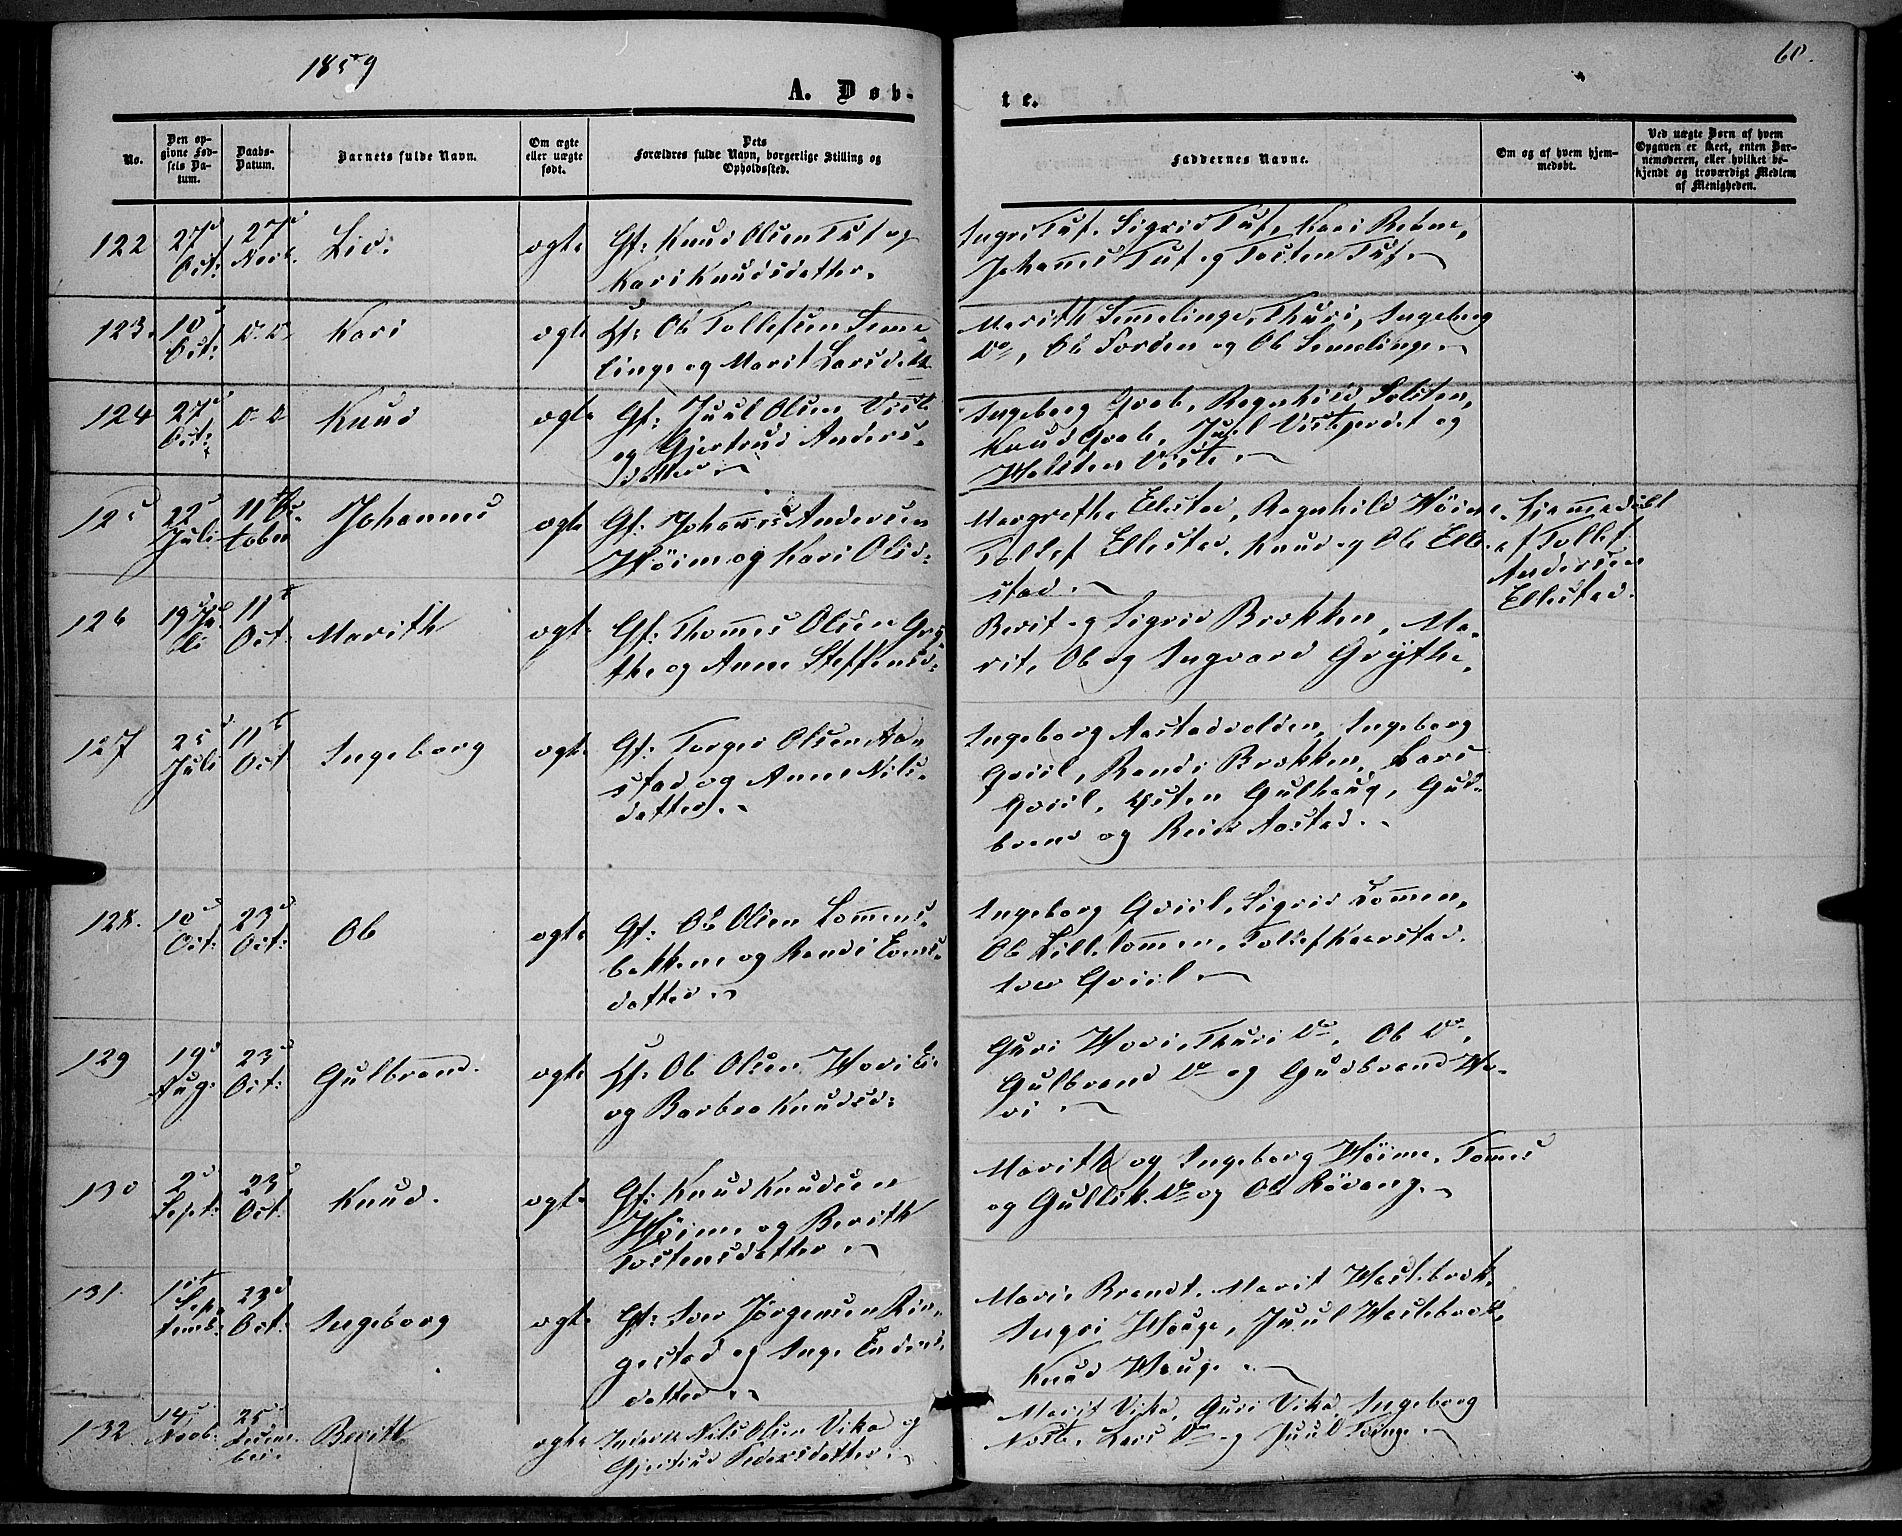 1859
60.
A. Døb-
te.
No.
Den op-
givne Fød-
sels Da-
tum.
Daabs-
Datum.
Barnets fulde Navn.
Om ægte
eller uægte
født.
Dets
Forældres fulde Navn, borgerlige Stilling og
Opholdssted.
Faddernes Navne.
Om og af hvem hjem-
medøbt.
Ved uægte Børn af hvem
Opgaven er skeet, enten Bar-
nemoderen, eller hvilket be-
kjendt og troværdigt Medlem
af Menigheden.
122
27d
Oct:
27d
Liv:
ægte
Gf: Knud Olsen Tuf og
Kari Knudsdatter.
Ingri Tuf, Sigrid Tuf, Kari
Johannes Tuf og Tosten Tuf.
123.
10d
Oct:
D. D.
Kari
ægte
Ole Tollefsen Seme-
linge og Marit Larsdatt.
Marith Semelinge, Thuri, Ingeborg
Do, Ole og Ole Semelinge
124
27d
Oct:
D. D.
Knud
ægte
Gf: Juul Olsen Viste
og Gjertrud Anders-
datter
Ingeborg Ragnhild
Knud Juul og
Viste
125
22d
Juli
11te Oc-
tober
Johannes
ægte
Gf: Johannes Andersen
Høime og Kari Olsd:
Margrethe Ellestad, Ragnhild Høime,
Tollef Ellestad, Knud og Ole Elle-
stad.
Hjemmedøbt
af Tollef
Andersen
Ellestad.
126
19d Ju-
li
11te
Oct:
Marith
ægte
Gf: Thomes Olsen Gry-
the og Anne Steffensd:
Berit og Sigrid Brokken, Ma-
rit, Ole og Ingvard Grythe.
127
25d
Juli
11te
Oct
Ingeborg
ægte
Gf: Torger Olsen Aa-
stad og Anne Nils-
datter.
Ingeborg Aastadvolden, Ingeborg
Qviil, Randi Brokken, Lars
Qviil, Østen Gulhaug, Gul-
brand og Aastad.
128.
10d
Oct:
23d
Oct:
Ole
ægte
Gf: Ole Olsen Lommens-
bakken og Randi
datter.
Ingeborg Qviil, Sigrid Lommen,
Ole Lillelommen, Tollef
Iver Qviil
129
19d
Aug:
23d
Oct:
Gulbrand.
ægte
Ole Olsen Hovi
og Barbra Knudsd:
Guri Hovi, Thuri Do, Ole Do,
Gulbrand Do og Gudbrand Ho-
vi
130
2d
Sept:
23d
Oct:
Knud.
ægte
Gf: Knud Knudsen
Høime og Berith
Tostensdatter
Marith og Ingeborg Høime, Tomes
og Gullik Do og Ole Røvang.
131.
Sep-
temb:
23d
Oct:
Ingeborg
ægte
Gf: Iver Jørgensen Rin-
gestad og Inge Endres-
datter
Marie Brandt, Marit
Ingri Hauge, Juul
Knud Hauge
132
14d
Novb:
25d
Decem-
ber.
Berith
ægte
Nils Olsen Vika og
Gjertrud Pedersdatter
Marit Vika, Guri Vika, Ingeborg
Lars Do og Juul